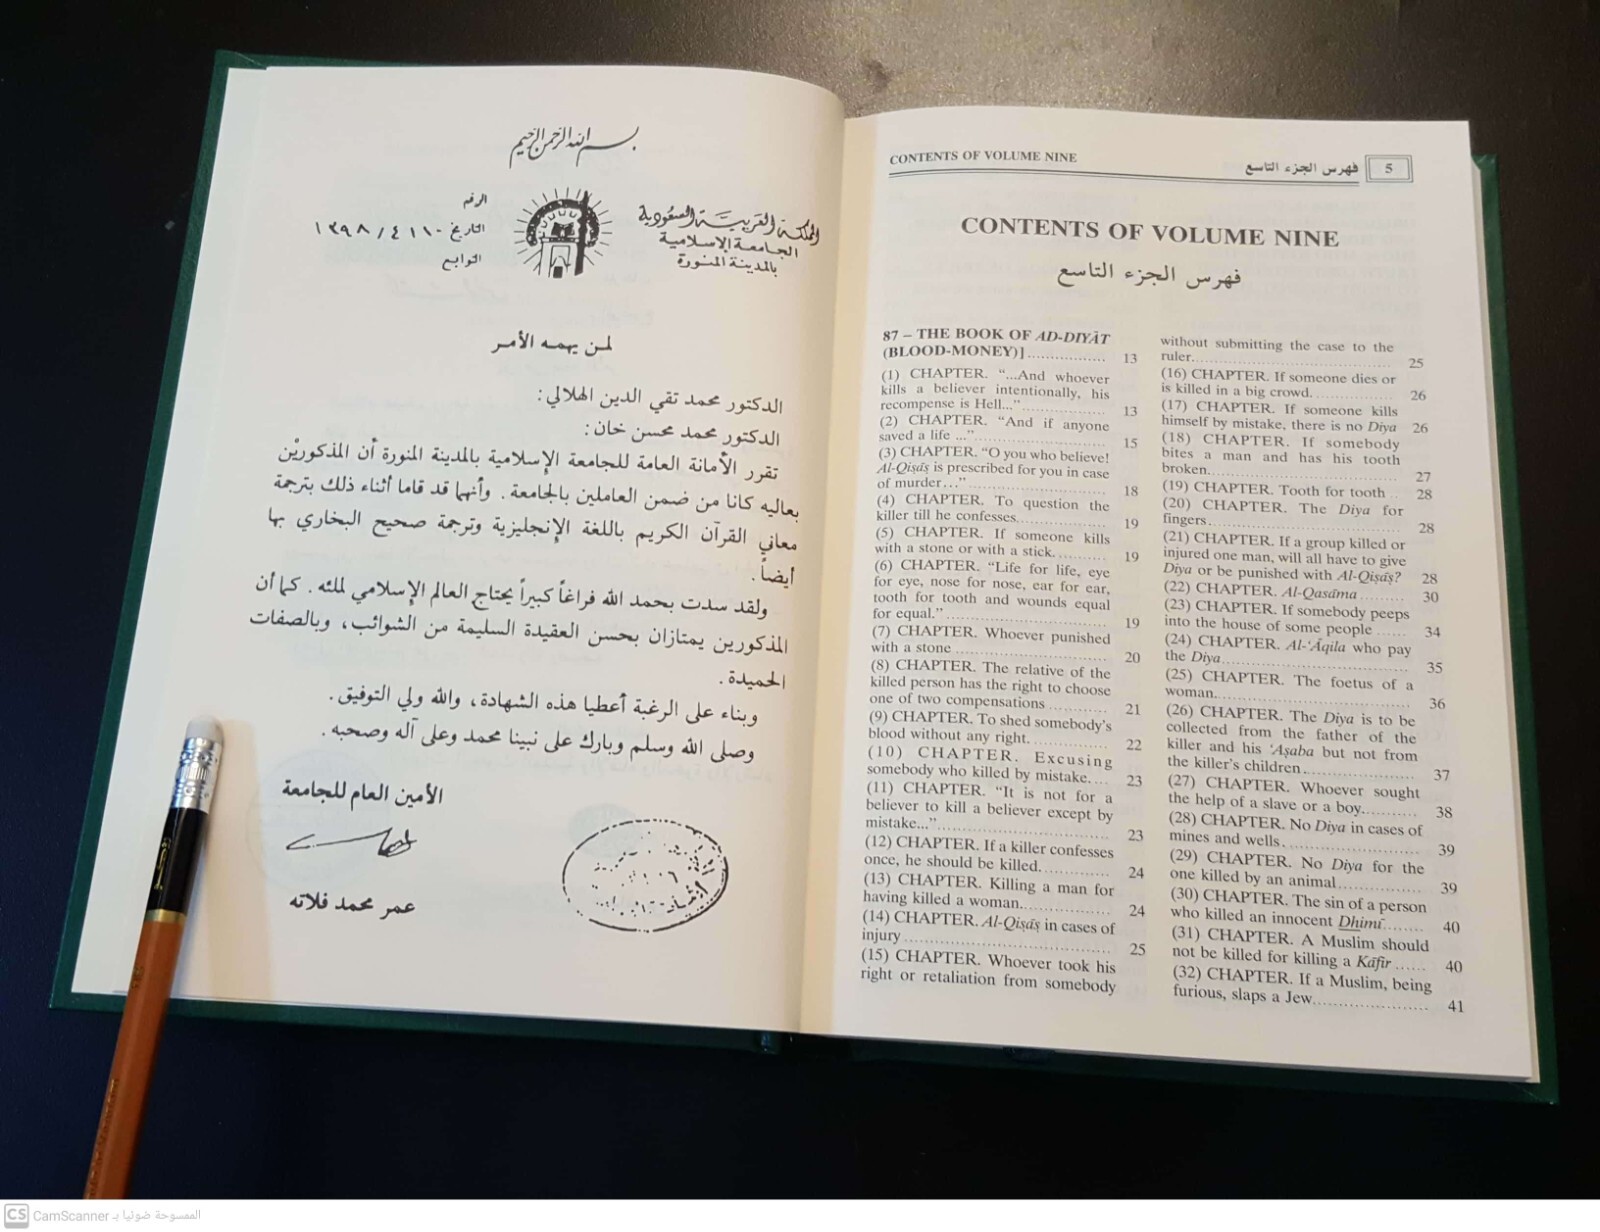 بسم الله الرحمن الرحيم
المملكة العربية السعودية
الجامعة الإسلامية
بالمدينة المنورة
الرقم
التاريخ ١٣٩٨/٤/١١٠
التوابع
لمن يهمه الأمر
الدكتور محمد تقي الدين الهلالي :
الدكتور محمد محسن خان :
تقرر الأمانة العامة للجامعة الإسلامية بالمدينة المنورة أن المذكورَيْن
بعاليه كانا من ضمن العاملين بالجامعة . وأنهما قد قاما أثناء ذلك بترجمة
معاني القرآن الكريم باللغة الإنجليزية وترجمة صحيح البخاري بها
أيضاً .
ولقد سدت بحمد الله فراغاً كبيراً يحتاج العالم الإسلامي لملئه . كما أن
المذكورين يمتازان بحسن العقيدة السليمة من الشوائب ، وبالصفات
الحميدة .
وبناء على الرغبة أعطيا هذه الشهادة ، والله ولي التوفيق .
وصلى الله وسلم وبارك على نبينا محمد وعلى آله وصحبه .
الأمين العام للجامعة
عمر محمد فلاته
CONTENTS OF VOLUME NINE
فهرس الجزء التاسع
5
CONTENTS OF VOLUME NINE
فهرس الجزء التاسع
87 – THE BOOK OF AD-DIYĀT
(BLOOD-MONEY)] .................. 13
(1) CHAPTER. “...And whoever
kills a believer intentionally, his
recompense is Hell...” .................. 13
(2) CHAPTER. “And if anyone
saved a life ...” .................. 15
(3) CHAPTER. “O you who believe!
Al-Qiṣāṣ is prescribed for you in case
of murder...” .................. 18
(4) CHAPTER. To question the
killer till he confesses. .................. 19
(5) CHAPTER. If someone kills
with a stone or with a stick. .......... 19
(6) CHAPTER. “Life for life, eye
for eye, nose for nose, ear for ear,
tooth for tooth and wounds equal
for equal.” .................. 19
(7) CHAPTER. Whoever punished
with a stone .................. 20
(8) CHAPTER. The relative of the
killed person has the right to choose
one of two compensations ............ 21
(9) CHAPTER. To shed somebody’s
blood without any right. .............. 22
(10) CHAPTER. Excusing
somebody who killed by mistake.... 23
(11) CHAPTER. “It is not for a
believer to kill a believer except by
mistake...” .................. 23
(12) CHAPTER. If a killer confesses
once, he should be killed. ............ 24
(13) CHAPTER. Killing a man for
having killed a woman. ................ 24
(14) CHAPTER. Al-Qiṣāṣ in cases of
injury .................. 25
(15) CHAPTER. Whoever took his
right or retaliation from somebody
without submitting the case to the
ruler. .................. 25
(16) CHAPTER. If someone dies or
is killed in a big crowd. ................ 26
(17) CHAPTER. If someone kills
himself by mistake, there is no Diya 26
(18) CHAPTER. If somebody
bites a man and has his tooth
broken. .................. 27
(19) CHAPTER. Tooth for tooth .. 28
(20) CHAPTER. The Diya for
fingers .................. 28
(21) CHAPTER. If a group killed or
injured one man, will all have to give
Diya or be punished with Al-Qiṣāṣ? 28
(22) CHAPTER. Al-Qasāma ......... 30
(23) CHAPTER. If somebody peeps
into the house of some people ...... 34
(24) CHAPTER. Al-‘Āqila who pay
the Diya .................. 35
(25) CHAPTER. The foetus of a
woman. .................. 36
(26) CHAPTER. The Diya is to be
collected from the father of the
killer and his ‘Aṣaba but not from
the killer’s children .................. 37
(27) CHAPTER. Whoever sought
the help of a slave or a boy. .......... 38
(28) CHAPTER. No Diya in cases of
mines and wells. .................. 39
(29) CHAPTER. No Diya for the
one killed by an animal ................ 39
(30) CHAPTER. The sin of a person
who killed an innocent Dhimī ........ 40
(31) CHAPTER. A Muslim should
not be killed for killing a Kāfir ...... 40
(32) CHAPTER. If a Muslim, being
furious, slaps a Jew .................. 41
CS CamScanner الممسوحة ضوئيا بـ